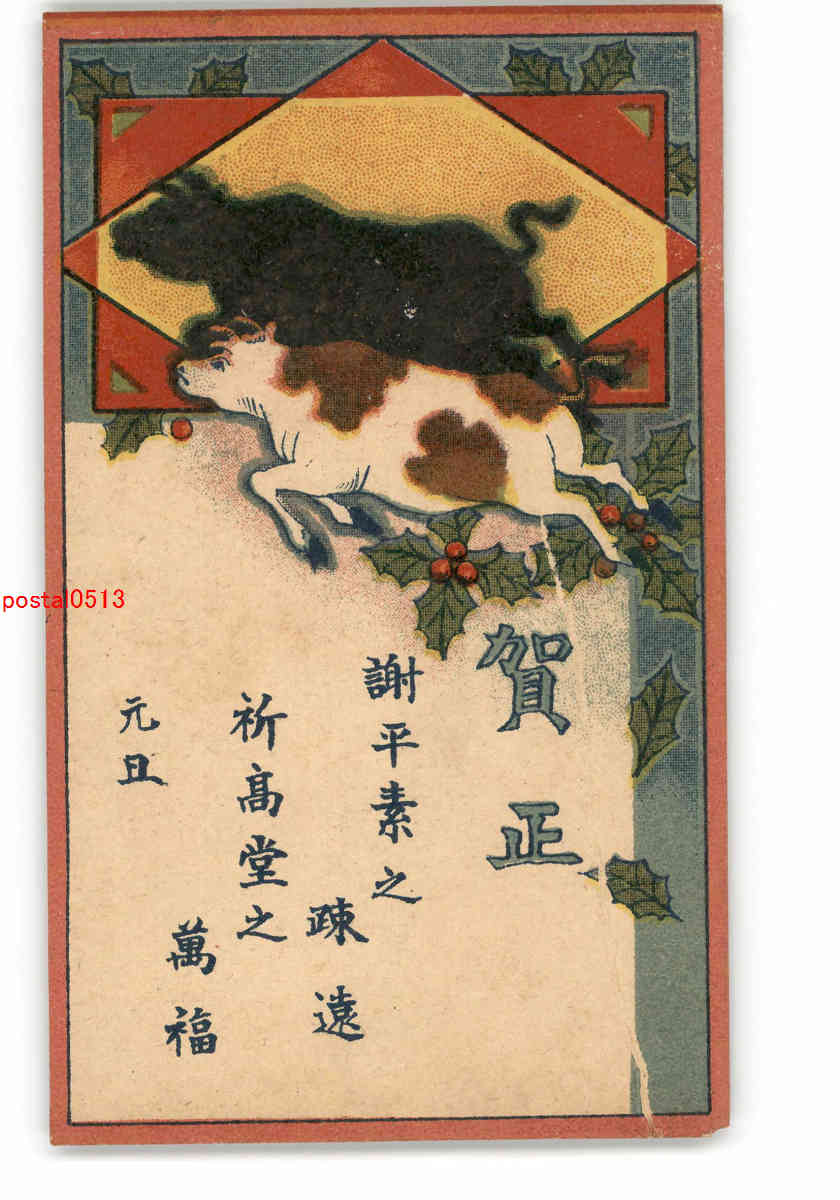 賀正
謝平素之
疎遠
祈高堂之
萬福
元旦
postal0513